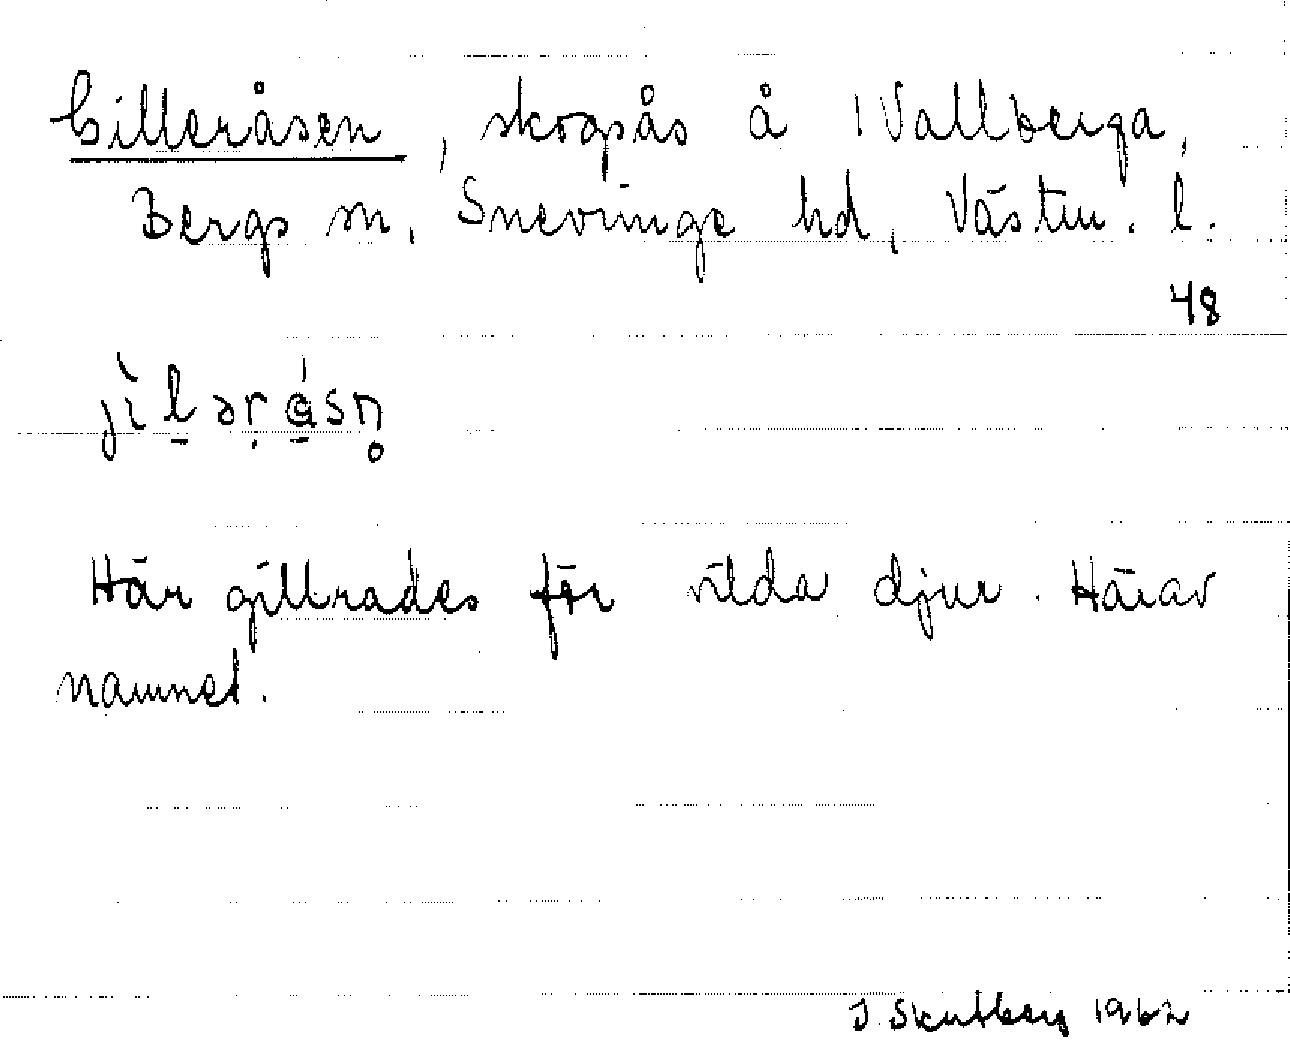 Gilleråsen, skogsås å Vallberga,
Bergs sn, Snevringe hd, Västm. l.
48
jìləråsn̥
Här gillrades för vilda djur. Härav
namnet.
J. Skutberg 1962